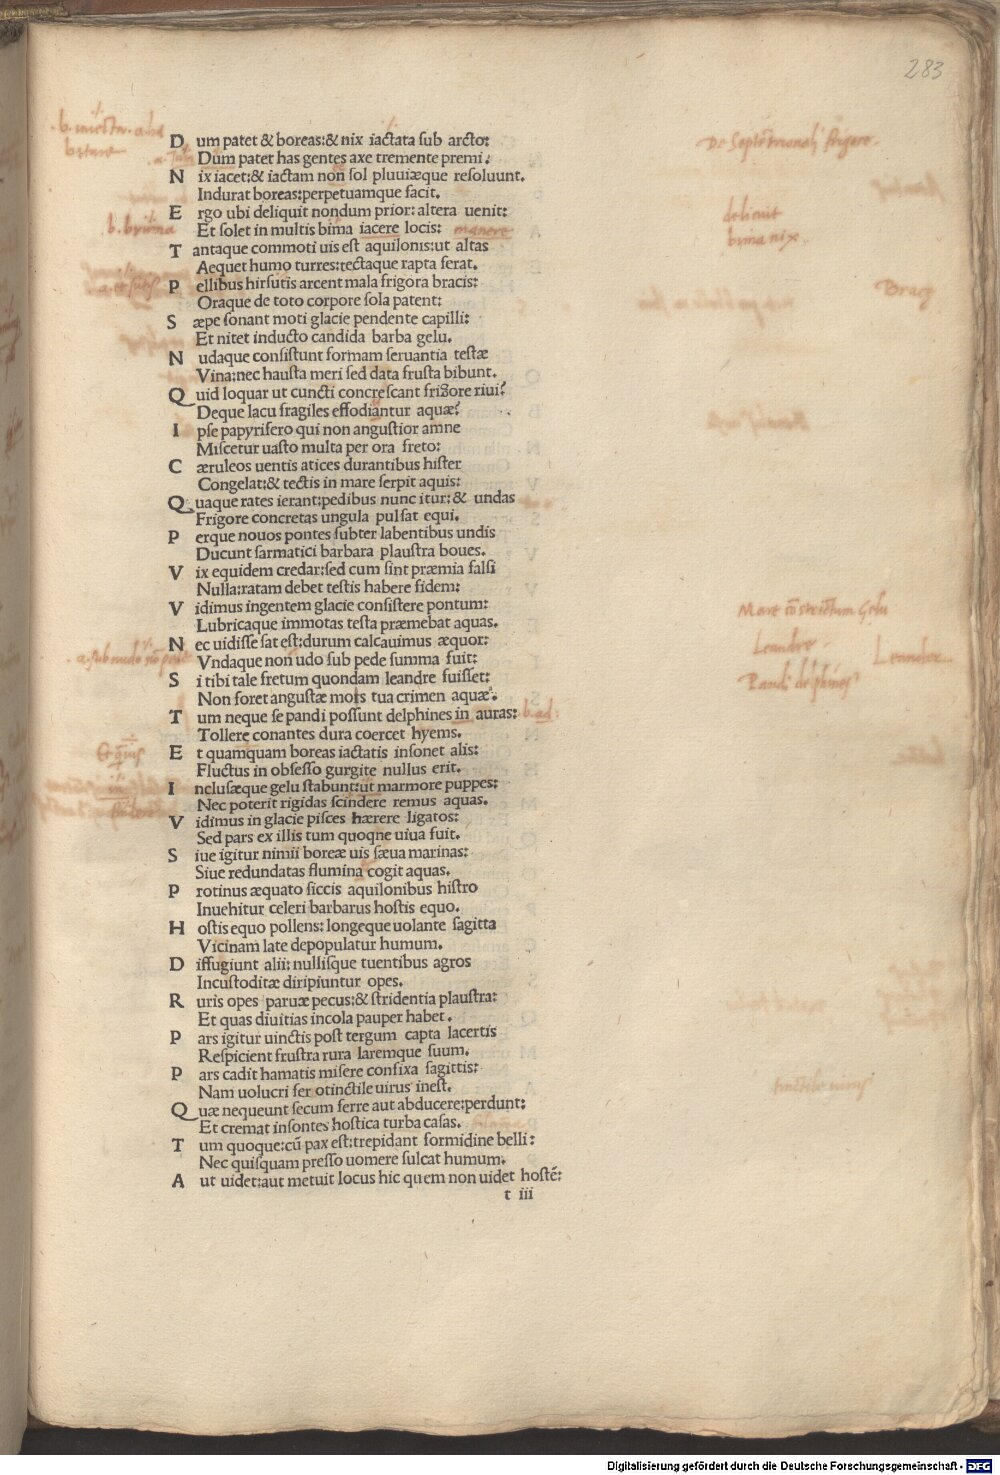 283
D um patet & boreas:& nix iactata sub arcto:
Dum patet has gentes axe tremente premi.
N ix iacet:& iactam non sol pluuiæque resoluunt.
Indurat boreas:perpetuamque facit.
E rgo ubi deliquit nondum prior: altera uenit:
Et solet in multis bima iacere locis: manere
T antaque commoti uis est aquilonis:ut altas
Aequet humo turres:tectaque rapta ferat.
P ellibus hirsutis arcent mala frigora bracis:
Oraque de toto corpore sola patent:
S æpe sonant moti glacie pendente capilli:
Et nitet inducto candida barba gelu.
N udaque consistunt formam seruantia testæ
Vina:nec hausta meri sed data frusta bibunt.
Q uid loquar ut cuncti concrescant frigore riui?
Deque lacu fragiles effodiantur aquæ?
I pse papyrifero qui non angustior amne
Miscetur uasto multa per ora freto:
C æruleos uentis atices durantibus hister
Congelat:& tectis in mare serpit aquis:
Q uaque rates ierant:pedibus nunc itur:& undas
Frigore concretas ungula pulsat equi.
P erque nouos pontes subter labentibus undis
Ducunt sarmatici barbara plaustra boues.
V ix equidem credar:sed cum sint præmia falsi
Nulla:ratam debet testis habere fidem:
V idimus ingentem glacie consistere pontum:
Lubricaque immotas testa præmebat aquas.
N ec uidisse sat est:durum calcauimus æquor:
Vndaque non udo sub pede summa fuit:
S i tibi tale fretum quondam leandre fuisset:
Non foret angustæ mors tua crimen aquæ.
T um neque se pandi possunt delphines in auras: b. ad:
Tollere conantes dura coercet hyems.
E t quamquam boreas iactatis insonet alis:
Fluctus in obsesso gurgite nullus erit.
I nclusæque gelu stabunt:ut marmore puppes:
Nec poterit rigidas scindere remus aquas.
V idimus in glacie pisces hærere ligatos:
Sed pars ex illis tum quoqne uiua fuit.
S iue igitur nimii boreæ uis sæua marinas:
Siue redundatas flumina cogit aquas.
P rotinus æquato siccis aquilonibus histro
Inuehitur celeri barbarus hostis equo.
H ostis equo pollens: longeque uolante sagitta
Vicinam late depopulatur humum.
D iffugiunt alii: nullisque tuentibus agros
Incustoditæ diripiuntur opes.
R uris opes paruæ pecus:& stridentia plaustra:
Et quas diuitias incola pauper habet.
P ars igitur uinctis post tergum capta lacertis
Respicient frustra rura laremque suum.
P ars cadit hamatis misere confixa sagittis:
Nam uolucri fer otinctile uirus inest.
Q uæ nequeunt secum ferre aut abducere:perdunt:
Et cremat insontes hostica turba casas.
T um quoque:cū pax est:trepidant formidine belli:
Nec quisquam presso uomere sulcat humum.
A ut uidet:aut metuit locus hic quem non uidet hostē:
t iii
b. bruma
delicuit
bima nix.
Mare cōstrictum Gelu
Leandre
Leander
Pandi delphines
tinctile uirus
Digitalisierung gefördert durch die Deutsche Forschungsgemeinschaft - DFG